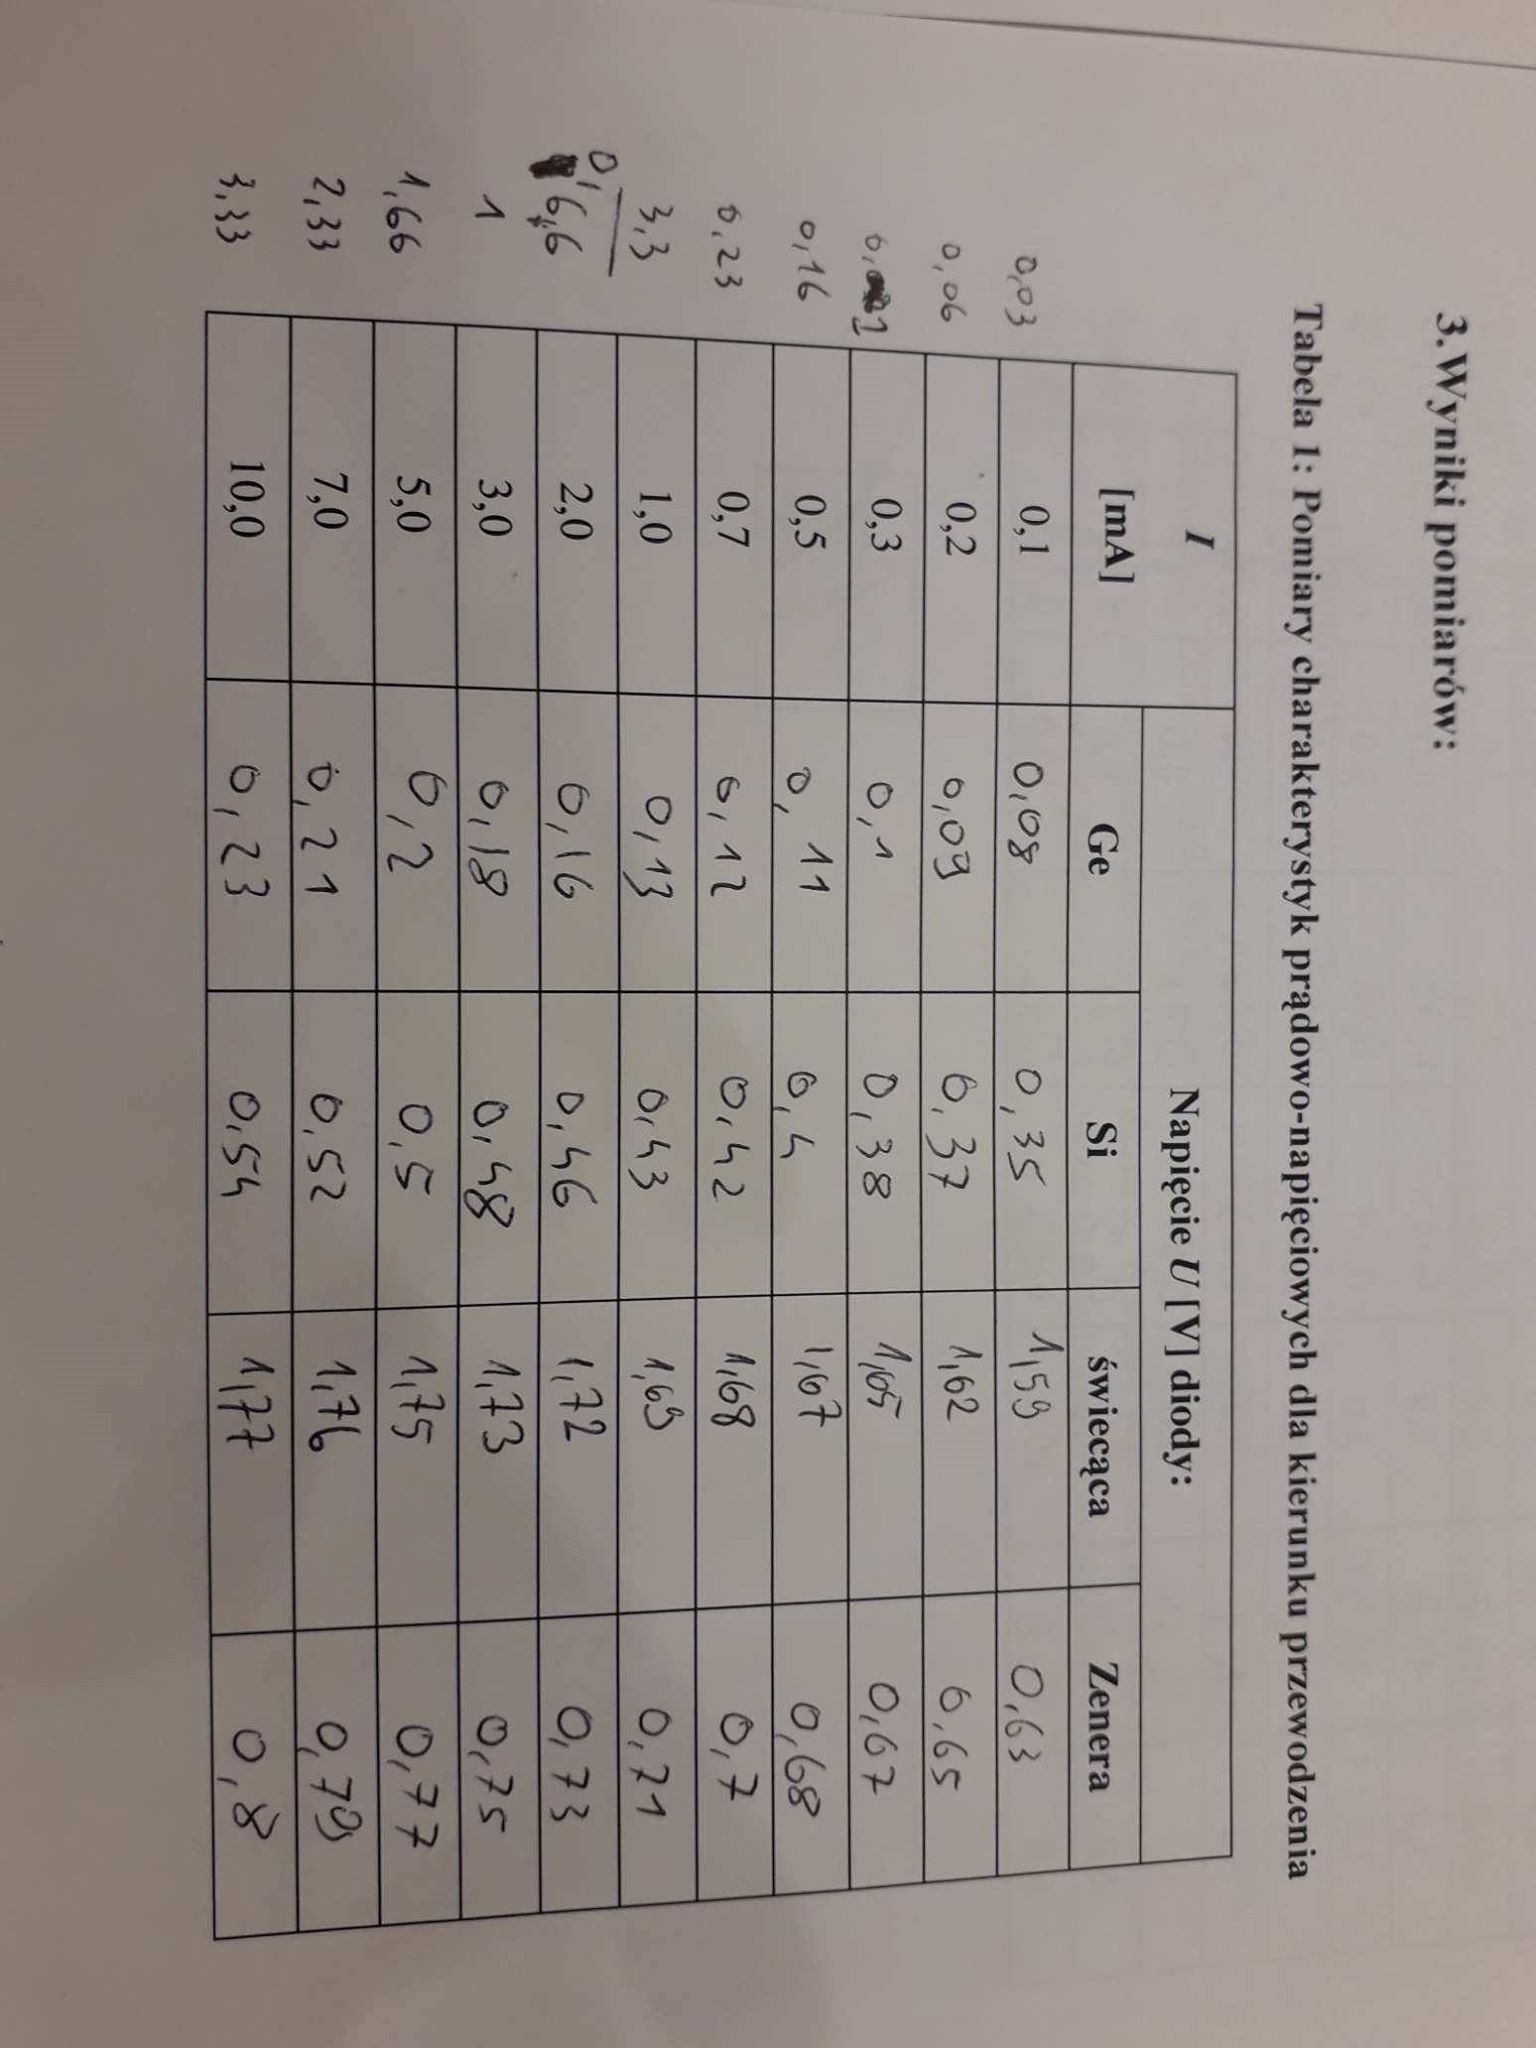 3. Wyniki pomiarów:
Tabela 1: Pomiary charakterystyk prądowo-napięciowych dla kierunku przewodzenia
I [mA] Napięcie U [V] diody:
Ge Si świecąca Zenera
0,03 0,1 0,08 0,35 1,59 0,63
0,06 0,2 0,09 0,37 1,62 0,65
0,1 0,3 0,1 0,38 1,65 0,67
0,16 0,5 0,11 0,4 1,67 0,68
0,23 0,7 0,12 0,42 1,68 0,7
3,3 1,0 0,13 0,43 1,69 0,71
0,66 2,0 0,16 0,46 1,72 0,73
1 3,0 0,18 0,48 1,73 0,75
1,66 5,0 0,2 0,5 1,75 0,77
2,33 7,0 0,21 0,52 1,76 0,79
3,33 10,0 0,23 0,54 1,77 0,8